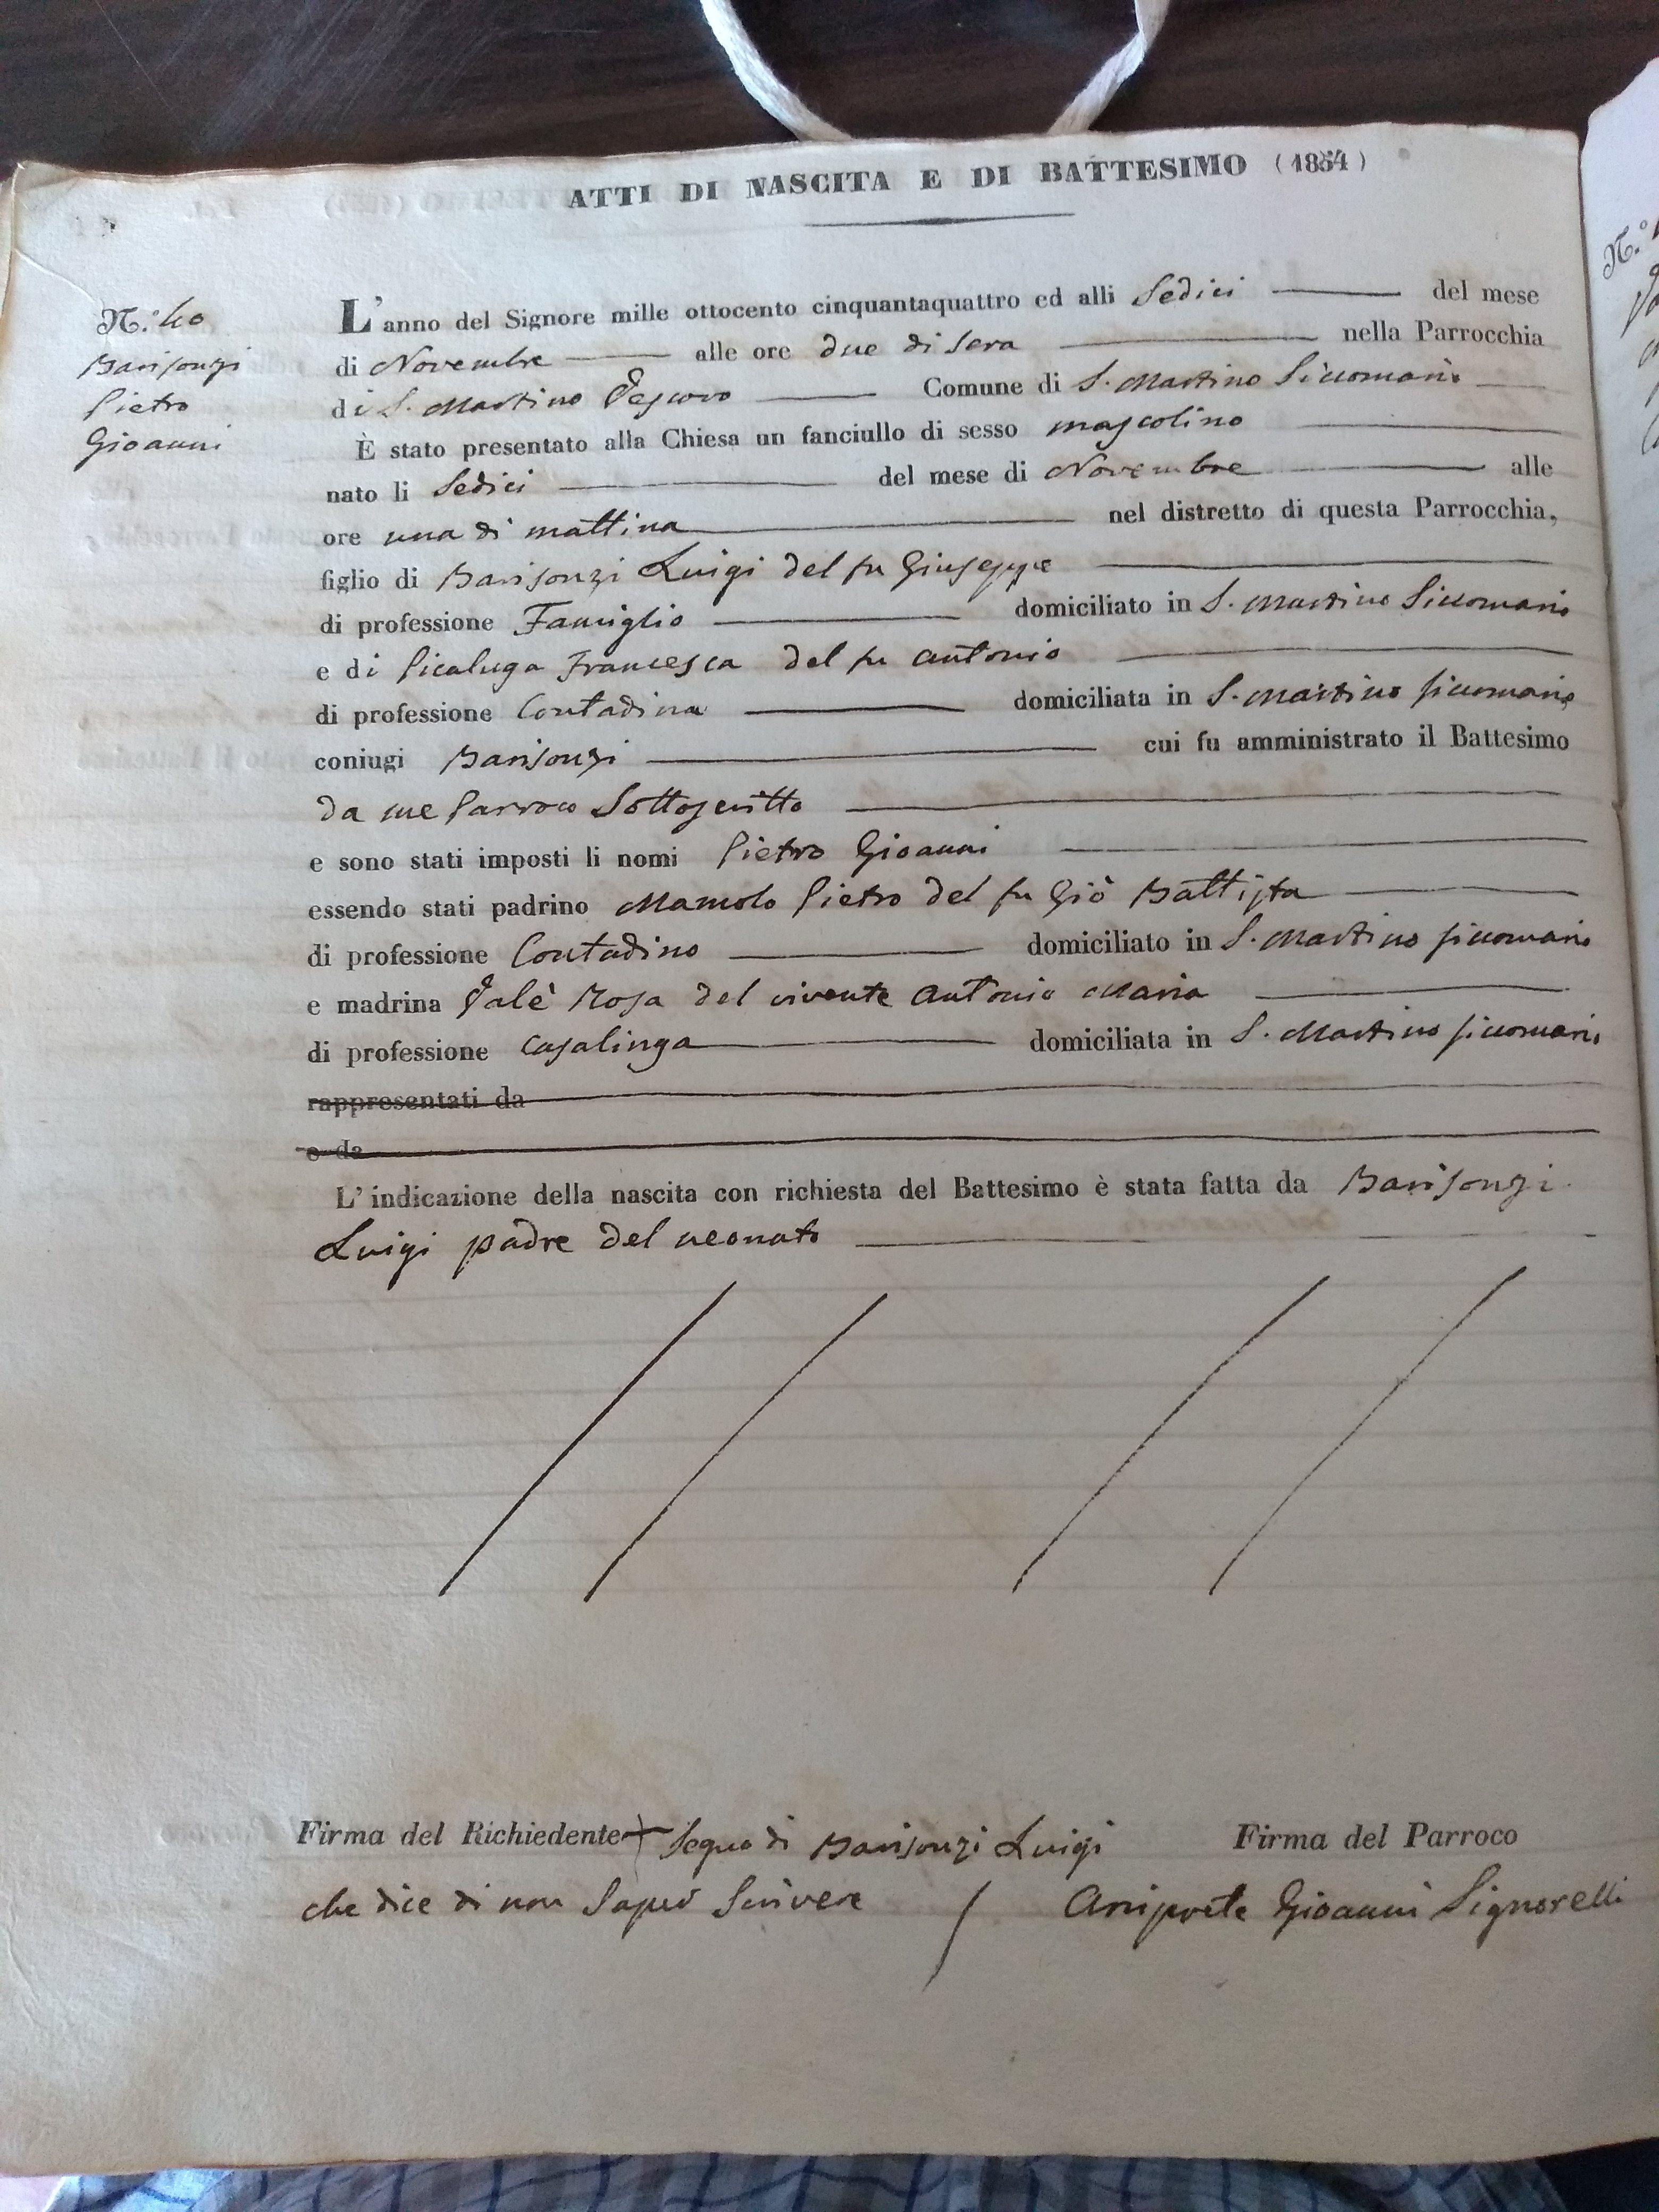 ATTI DI NASCITA E DI BATTESIMO (1854)
N.° 40
Barisonzi
Pietro
Gioanni
L'anno del Signore mille ottocento cinquantaquattro ed alli Sedici del mese
di Novembre alle ore due di sera nella Parrocchia
di S. Martino Vescovo Comune di S. Martino Siccomario
È stato presentato alla Chiesa un fanciullo di sesso mascolino
nato li Sedici del mese di Novembre alle
ore una di mattina nel distretto di questa Parrocchia,
figlio di Barisonzi Luigi del fu Giuseppe
di professione Famiglio domiciliato in S. Martino Siccomario
e di Picaluga Francesca del fu Antonio
di professione Contadina domiciliata in S. Martino siccomario
coniugi Barisonzi cui fu amministrato il Battesimo
da me Parroco Sottoscritto
e sono stati imposti li nomi Pietro Gioanni
essendo stati padrino Pietro del fu Giò Battista
di professione Contadino domiciliato in S. Martino siccomario
e madrina Valè Rosa del vivente Antonio Maria
di professione casalinga domiciliata in S. Martino siccomario
rappresentati da
e da
L'indicazione della nascita con richiesta del Battesimo è stata fatta da Barisonzi
Luigi padre del neonato
Firma del Richiedente + Segno di Barisonzi Luigi Firma del Parroco
che dice di non Saper Scrivere Arciprete Gioanni Signorelli
N.°